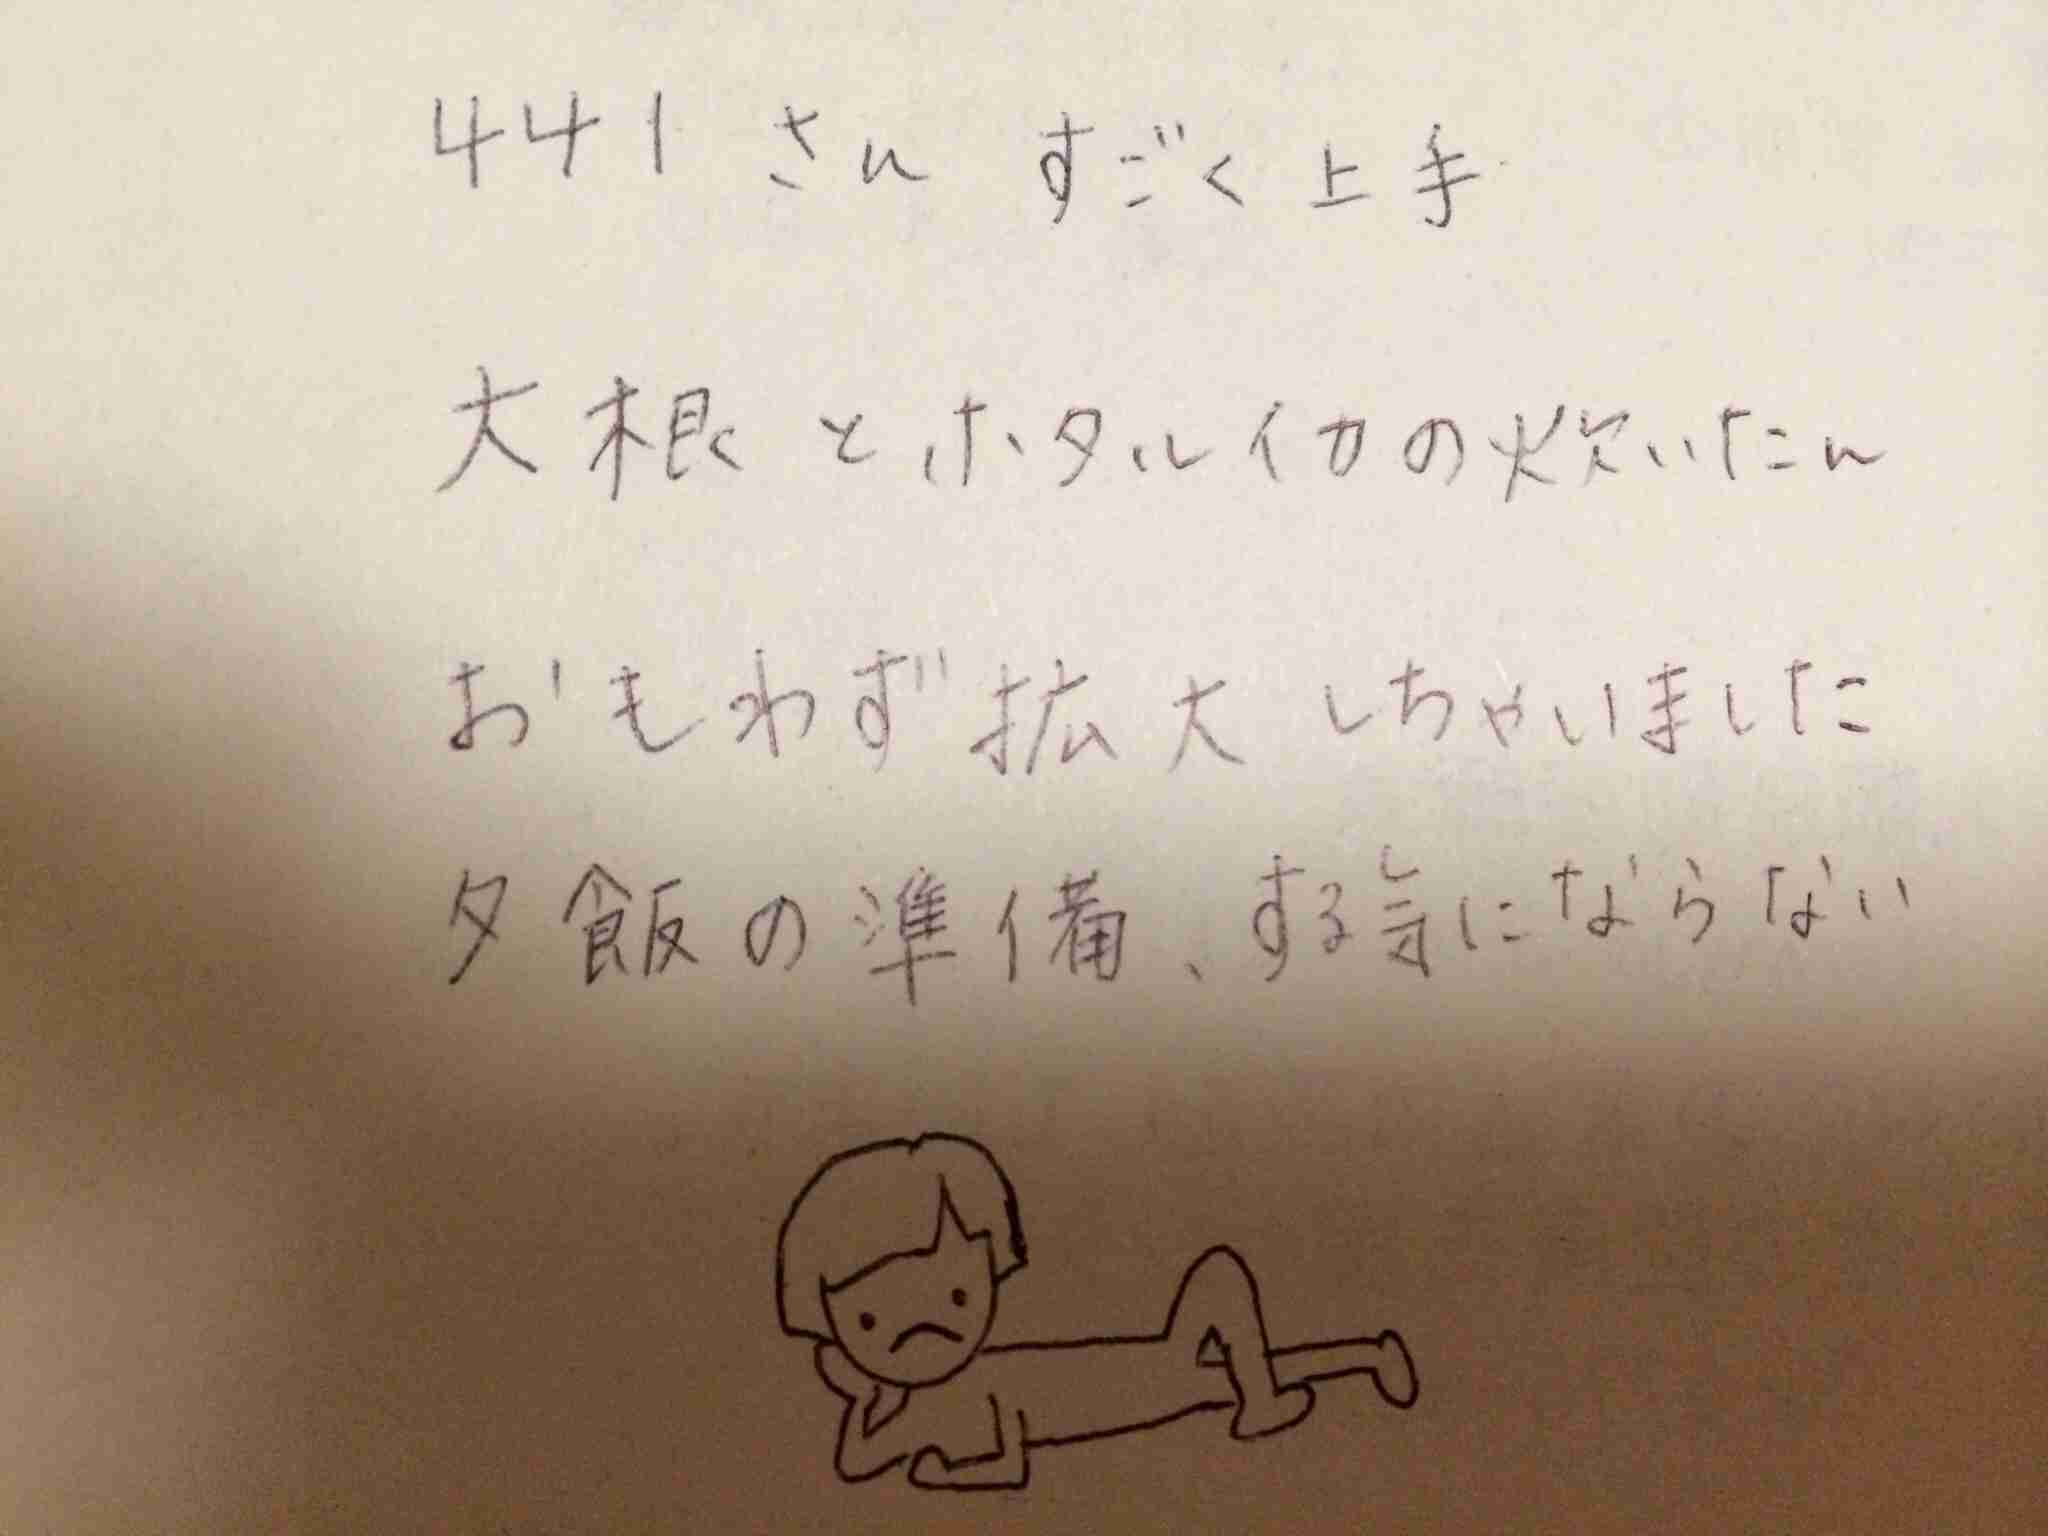 441 さん すごく上手
大根とホタルイカの炊いたん
おもわず拡大しちゃいました
夕飯の準備、する気にならない